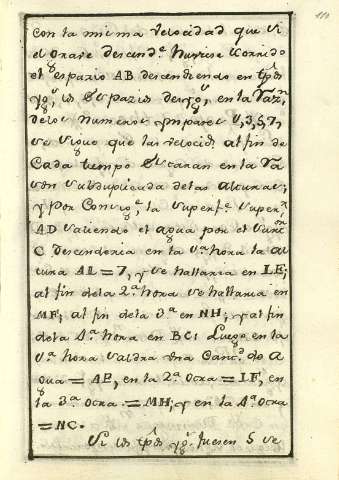 110
con la misma velocidad que si
el Grave descend.e huviese corrido
el espazio AB descendiendo en tp̃os
yg.s, los Espazios de yg.s, en la Raz.n
delos Numeros ympares 1, 3, 5, 7,
se sigue que las velocid.s al fin de
Cada tiempo Estaran en la Ra
zon Subduplicada delas alturas;
y por Consig.e, la Superf.e Super.r
AD saliendo el agua por el
C descenderia en la 1.a hora la al
tura AL = 7, y se hallaria en LE;
al fin dela 2.a hora se hallaria en
MF; al fin dela 3.a en NH; y al fin
dela 4.a hora en BC: Luego en la
1.a hora saldra una Cant.d de A
gua = AE, en la 2.a Otra = LF, en
la 3.a Otra = MH; y en la 4.a Otra
= NC.
Si los tp̃os yg.s fuesen 5 se